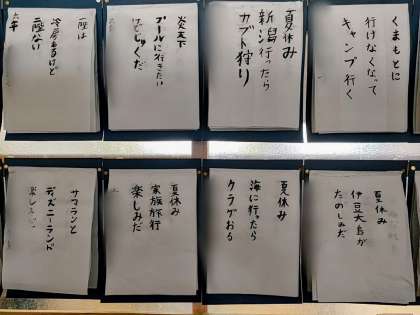 くまもとに
行けなくなって
キャンプ行く
夏休み
新潟行ったら
カブト狩り
炎天下
プールに行きたい
けどじゅくだ
冷房あるけど
二階ない
夏休み
伊豆大島が
たのしみだ
夏休み
海に行ったら
クラゲおる
夏休み
家族旅行
楽しみだ
サマランと
ディズニーランド